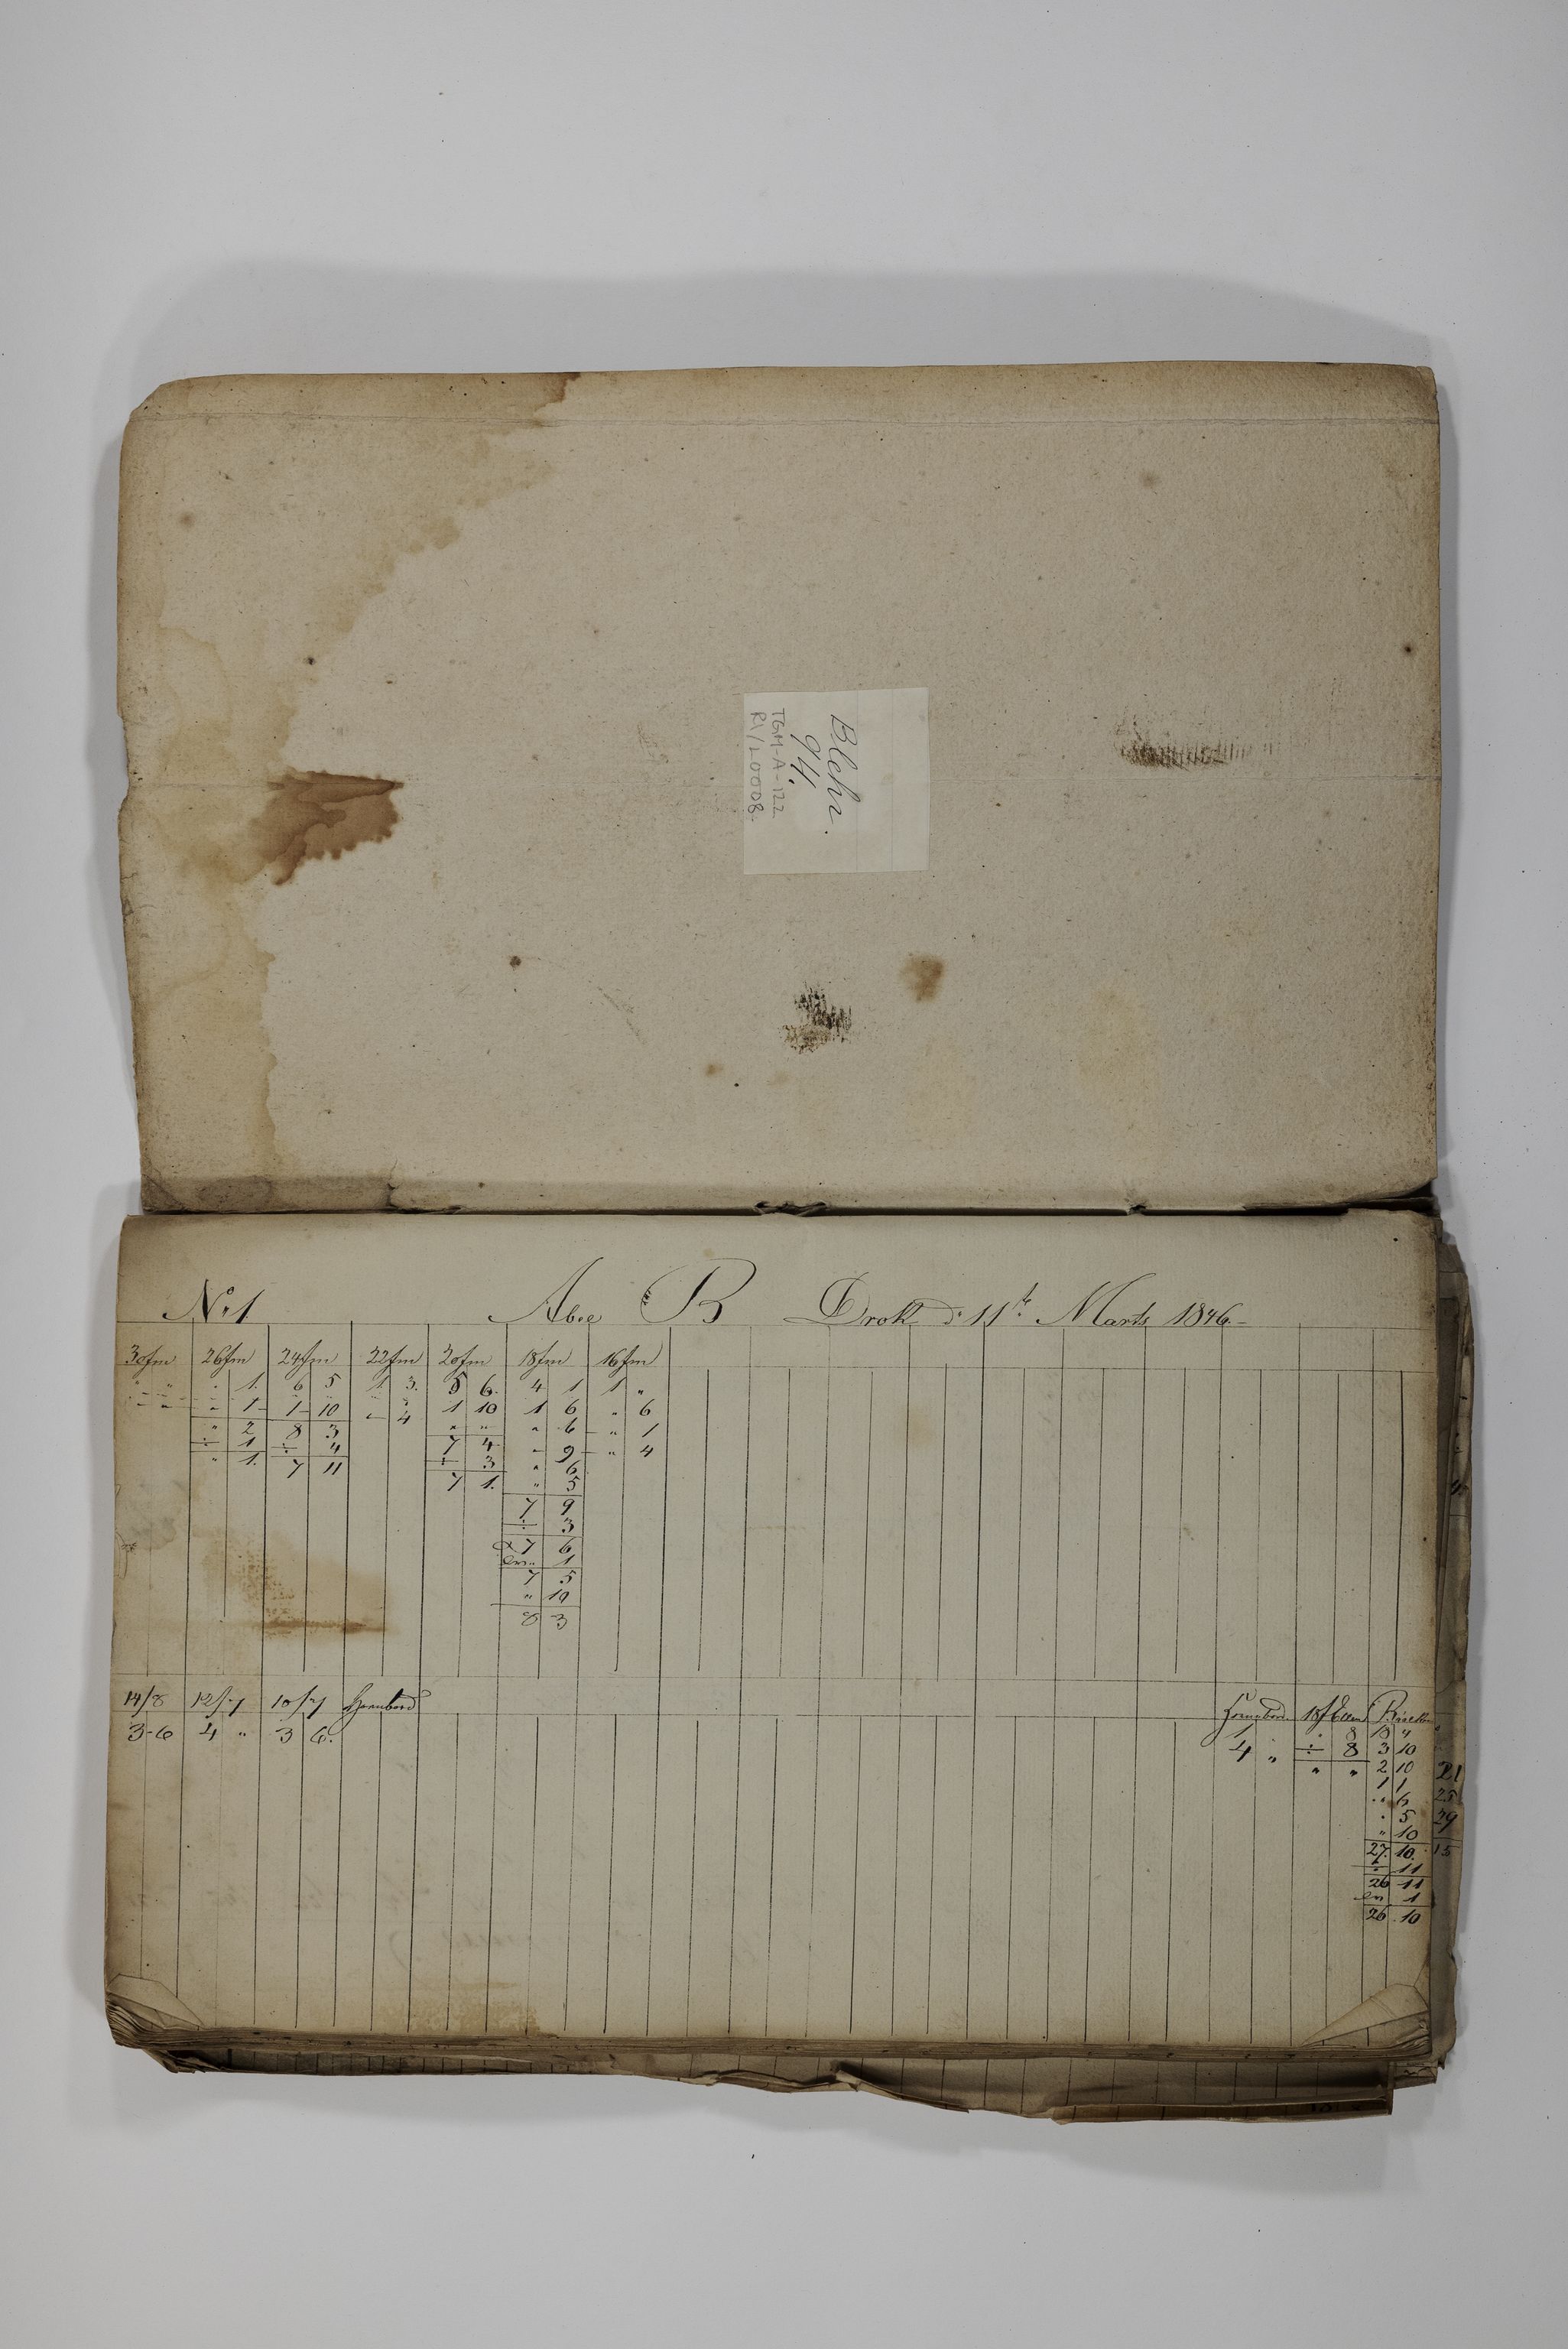 Blehr.
94.
TGM-A-122
R1/L0008-
No 1. Abo B Drokt d: 11te Marts 1846.-
30fm 26fm 24fm 22fm 20fm 18fm 16fm
" " " 1. 6 5 1 3. 5 6. 4 1 1 "
" " " 1- 1- 10 " 4 1 10 1 6 " 6
" 2 8 3 " " " 6 " 1
÷ 1 ÷ 4 7 4 " 9 " 4
" 1. 7 11 ÷ 3 " 6
7 1. " 5
7 9
÷ 3
7 6
1
7 5
" 10
8 3
14/8 12/7 10/7
3-6 4 " 3 6.
1 " " 8 18 "
4 " ÷ 8 3 10
" " 2 10 21
1 1 25
" 6 29
" 5
" 10
27. 10. 15
÷ 11
26 11
1
26 10